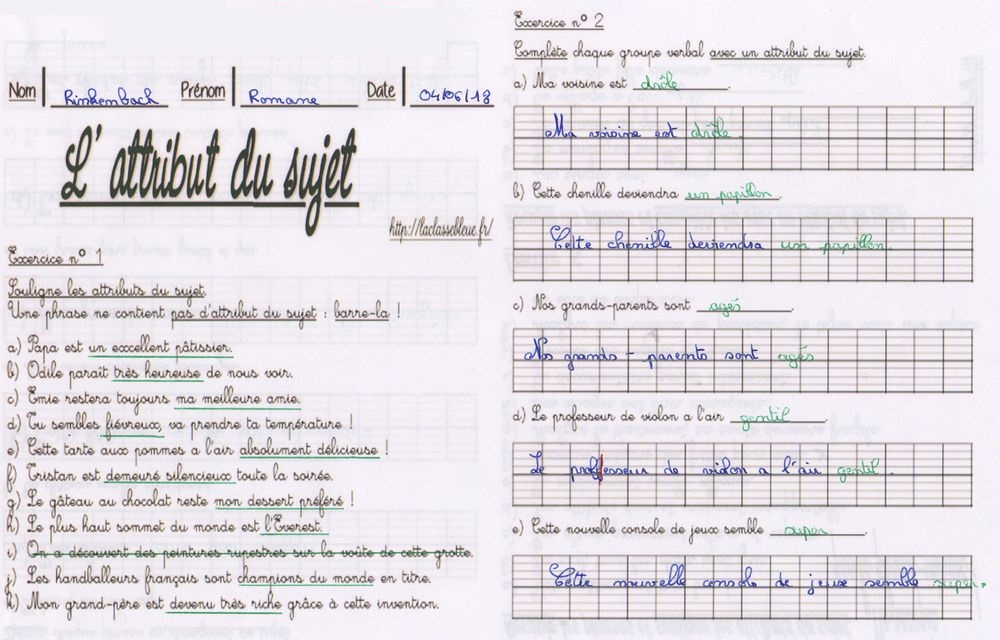 Nom | Rinkenbach Prénom | Romane Date | 04/06/18
L'attribut du sujet
http://laclassebleue.fr/
Exercice n° 1
Souligne les attributs du sujet.
Une phrase ne contient pas d'attribut du sujet : barre-la !
a) Papa est un excellent pâtissier.
b) Odile paraît très heureuse de nous voir.
c) Emie restera toujours ma meilleure amie.
d) Tu sembles fiévreux, va prendre ta température !
e) Cette tarte aux pommes a l'air absolument délicieuse !
f) Tristan est demeuré silencieux toute la soirée.
g) Le gâteau au chocolat reste mon dessert préféré !
h) Le plus haut sommet du monde est l'Everest.
i) On a découvert des peintures rupestres sur la voûte de cette grotte.
j) Les handballeurs français sont champions du monde en titre.
k) Mon grand-père est devenu très riche grâce à cette invention.
Exercice n° 2
Complète chaque groupe verbal avec un attribut du sujet.
a) Ma voisine est drôle.
Ma voisine est drôle.
b) Cette chenille deviendra un papillon.
Cette chenille deviendra un papillon.
c) Nos grands-parents sont agés.
Nos grands-parents sont agés
d) Le professeur de violon a l'air gentil.
Le professeur de violon a l'air gentil.
e) Cette nouvelle console de jeux semble super.
Cette nouvelle console de jeux semble super.